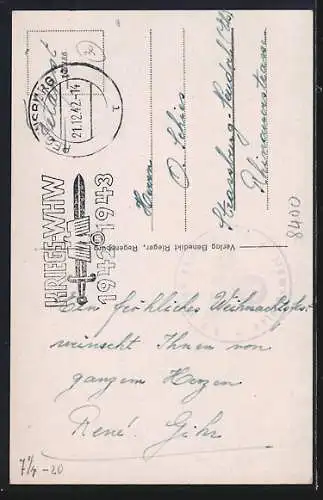 Feldpost
REGENSBURG
21.12.42-14
1
KRIEGS-WHW
1942 1943
Herrn
O.
Strassburg-Neudorf
Verlag Benedikt Rieger, Regensburg
8400
Ein fröhliches Weihnachtsfest
wünscht Ihnen von
ganzem Herzen
René Gihr
7/4-20